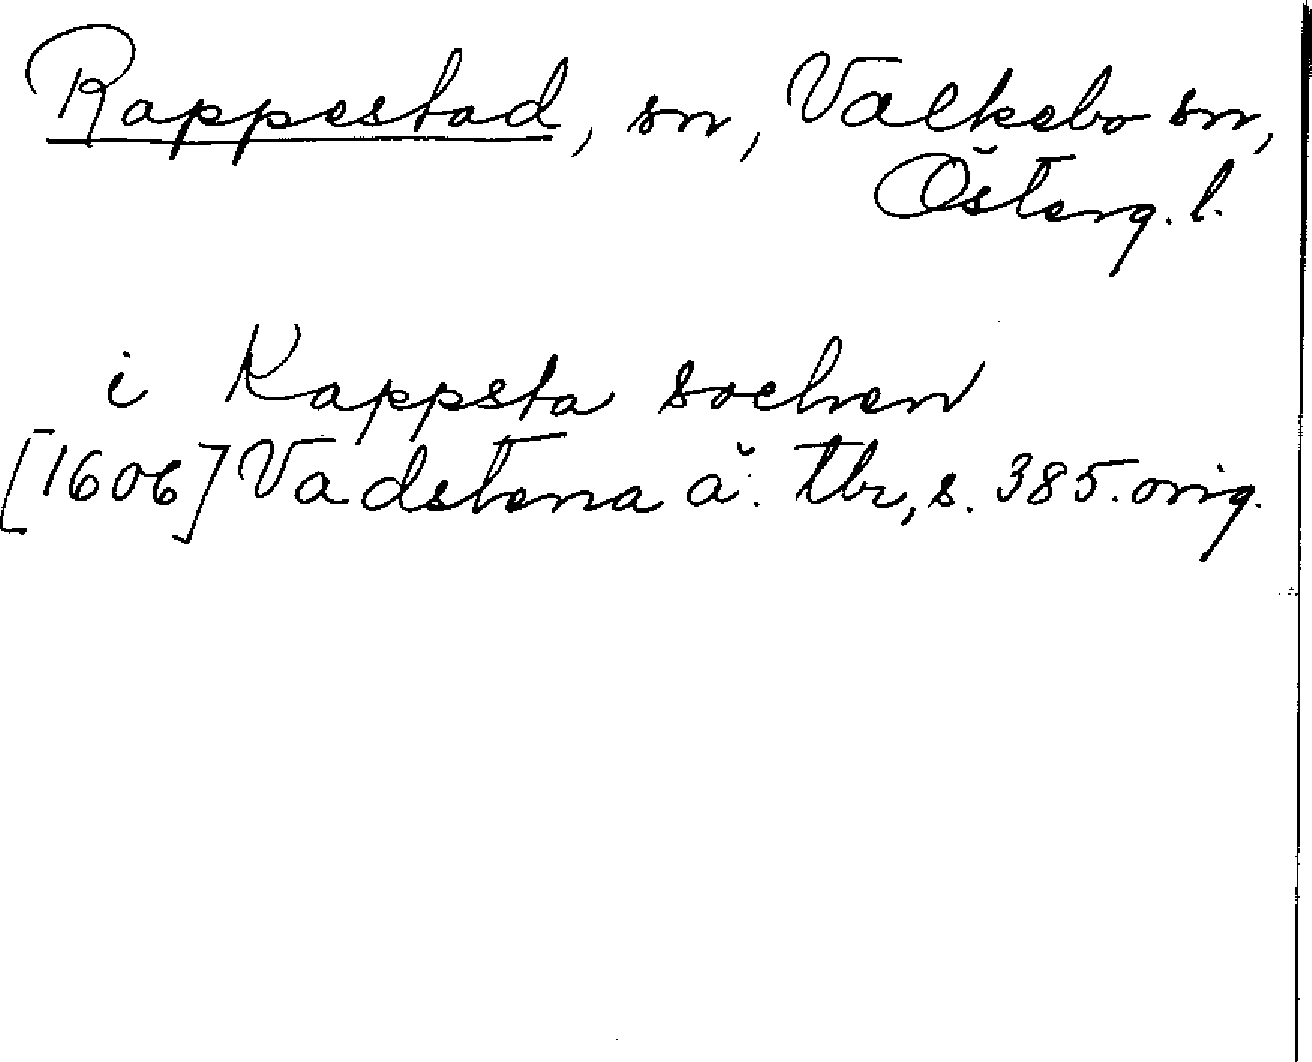 Rappestad, sn, Valkebo sn,
Österg. l.
i Kappsta sochen
[1606] Vadstena ä. tbr, s. 385. orig.